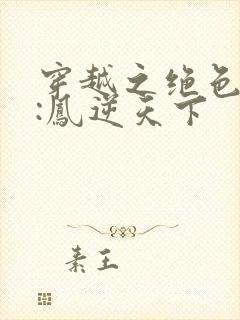 穿越之绝色
:凰逆天下
素王